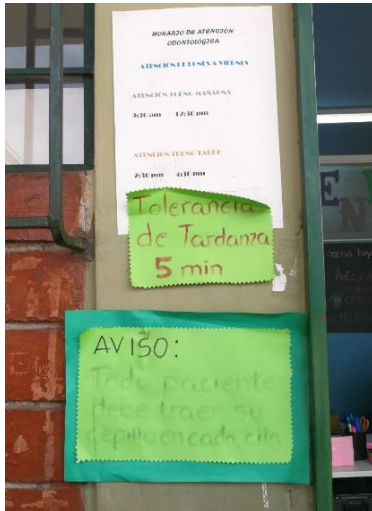 HORARIO DE ATENCIÓN
ODONTOLÓGICA
ATENCIÓN DE LUNES A VIERNES
ATENCIÓN TURNO MAÑANA
12:30 pm
ATENCIÓN TURNO TARDE
2:30 pm 4:30 pm
Tolerancia
de Tardanza
5 min
AVISO:
Todo paciente
debe traer su
cepillo en cada cita